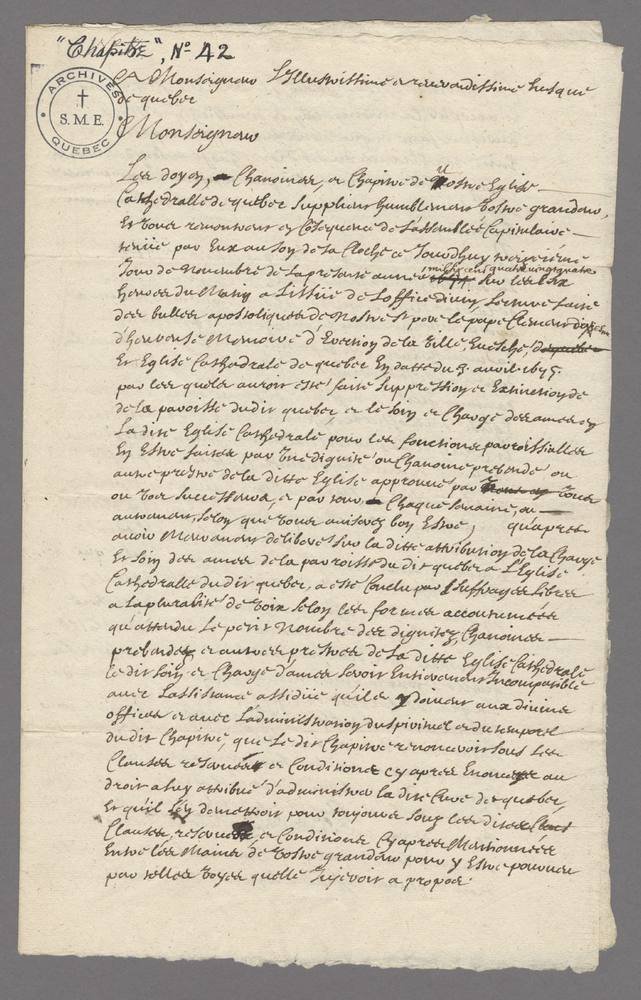 "Chapitre", No 42
ARCHIVES
S.M.E.
QUEBEC
A Monseigneur L'Illustrissime et reverendissime Evesque
de quebec
Monseigneur
Les doyen, Chanoines, et Chapitre de Vostre Eglise
Cathedralle de quebec supplient humblement Vostre grandeur,
Et vous remonstrent en Consequence de L'assemblée Capitulaire
tenüe par Eux au son de la Cloche ce Jourdhuy treizieme
Jour de Novembre de la presente année mil six cent quatre vingt quatre sur les dix
heures du Matin a L'issüe de L'office divin, Lecture faite
des bulles apostoliques de Nostre St pere le pape Clement dix
d'heureuse Memoire d'Erection de la Ville Evesché,
Et Eglise Cathedrale de quebec En datte du
par les queles auroit esté faite suppression et Extinction de
de la paroisse du dit quebec et le soin et Charge des ames en
La dite Eglise Cathedrale pour les fonctions parroissialles
En Estre faites par une dignité ou Chanoine prebendé ou
autre prestre de la ditte Eglise approuvé par Vous
ou Vos Successeurs, et par tour Chaque semaine, ou
autrement, selon que Vous aviserez bon Estre, quapres
avoir Meurement deliberé sur la ditte attribution de la Charge
Et soin des ames de la parroisse du dit quebec a L'Eglise
Cathedralle du dit quebec, a esté Conclu par suffrages Libres
a la pluralité de voix selon les formes accoutumées
qu'attendu Le petit Nombre des dignitez, Chanoines
prebendés et autres prestres de La ditte Eglise Cathedrale
le dit soin et Charge d'ames seroit Entierement Incompatible
avec Lassistance assidüe qu'ils y doivent aux divins
offices et avec L'administration du spirituel et du temporel
du dit Chapitre, que Le dit Chapitre renonceroit sous Les
Clauses reserves et Conditions cy apres Enoncées au
droit a luy attribué d'administrer la dite Cure de quebec,
Et qu'il s'en demettroit pour toujours souz les dites
Clauses, reserves, et Conditions Cy apres Mentionnées
Entre les Mains de Vostre grandeur pour y Estre pourveu
par telles Voyes quelle Jugeroit a propos.